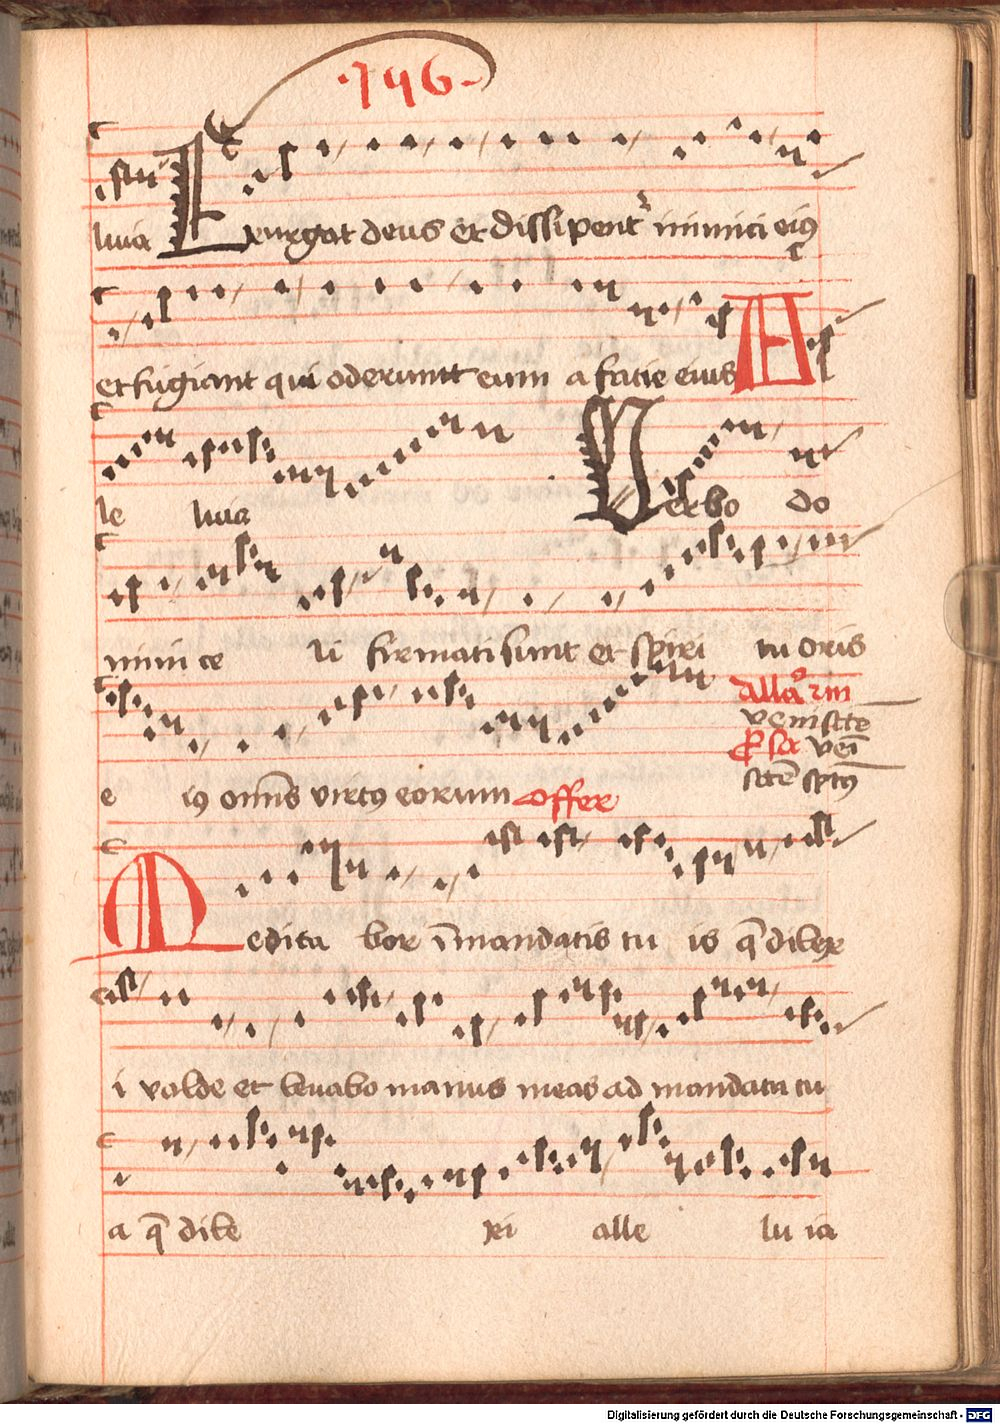 ·146·
luia Exurgat deus et dissipent inimici eiꝰ
et fugiant qui oderuntt eum a facie eius A
le luia Verbo do
mini ce li firmati sunt et spiri tu oris
Alla 2m
veni sctē
sctē spūs
e iꝰ omīs virtꝰ eorum offer
Medita bor ī mandatis tu is q̄ dilex
i valde et levabo manus meas ad mandata tu
a q̄ dile xi alle lu ia
Digitalisierung gefördert durch die Deutsche Forschungsgemeinschaft - DFG